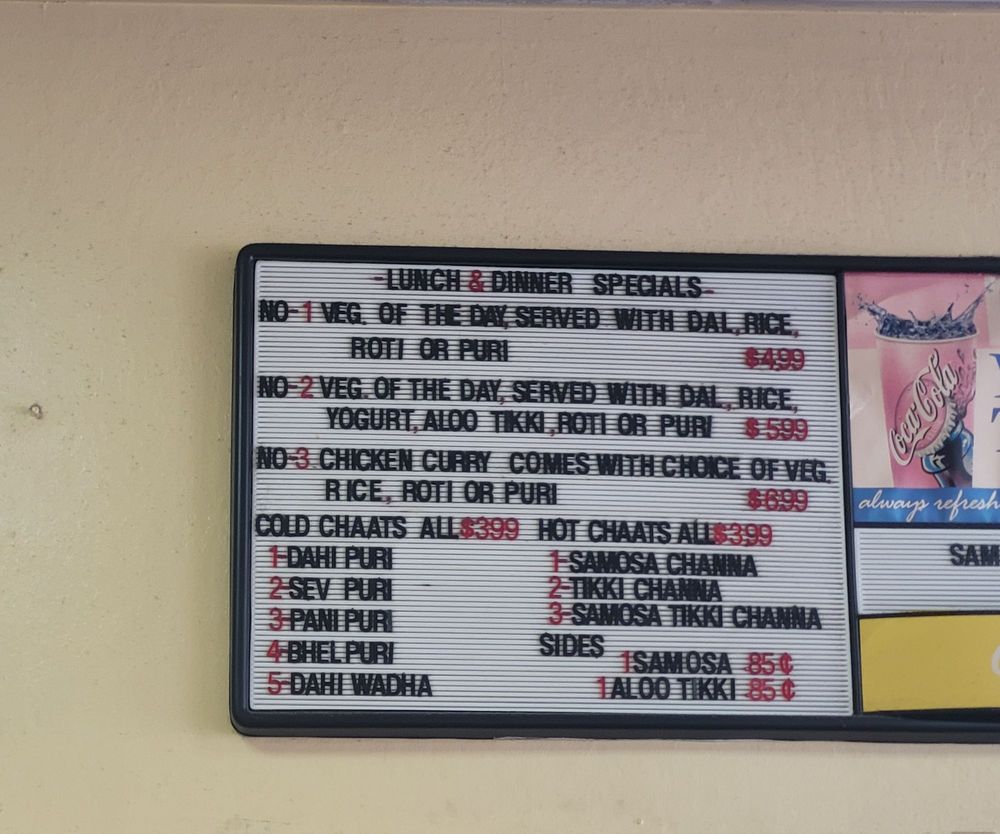 -LUNCH & DINNER SPECIALS-
NO-1 VEG. OF THE DAY, SERVED WITH DAL, RICE,
ROTI OR PURI $4.99
NO-2 VEG. OF THE DAY, SERVED WITH DAL, RICE,
YOGURT, ALOO TIKKI, ROTI OR PURI $5.99
NO-3 CHICKEN CURRY COMES WITH CHOICE OF VEG.
RICE, ROTI OR PURI $6.99
COLD CHAATS ALL $3.99
1-DAHI PURI
2-SEV PURI
3-PANI PURI
4-BHEL PURI
5-DAHI WADHA
HOT CHAATS ALL $3.99
1-SAMOSA CHANNA
2-TIKKI CHANNA
3-SAMOSA TIKKI CHANNA
SIDES
1 SAMOSA .85¢
1 ALOO TIKKI .85¢
Coca-Cola
always refresh